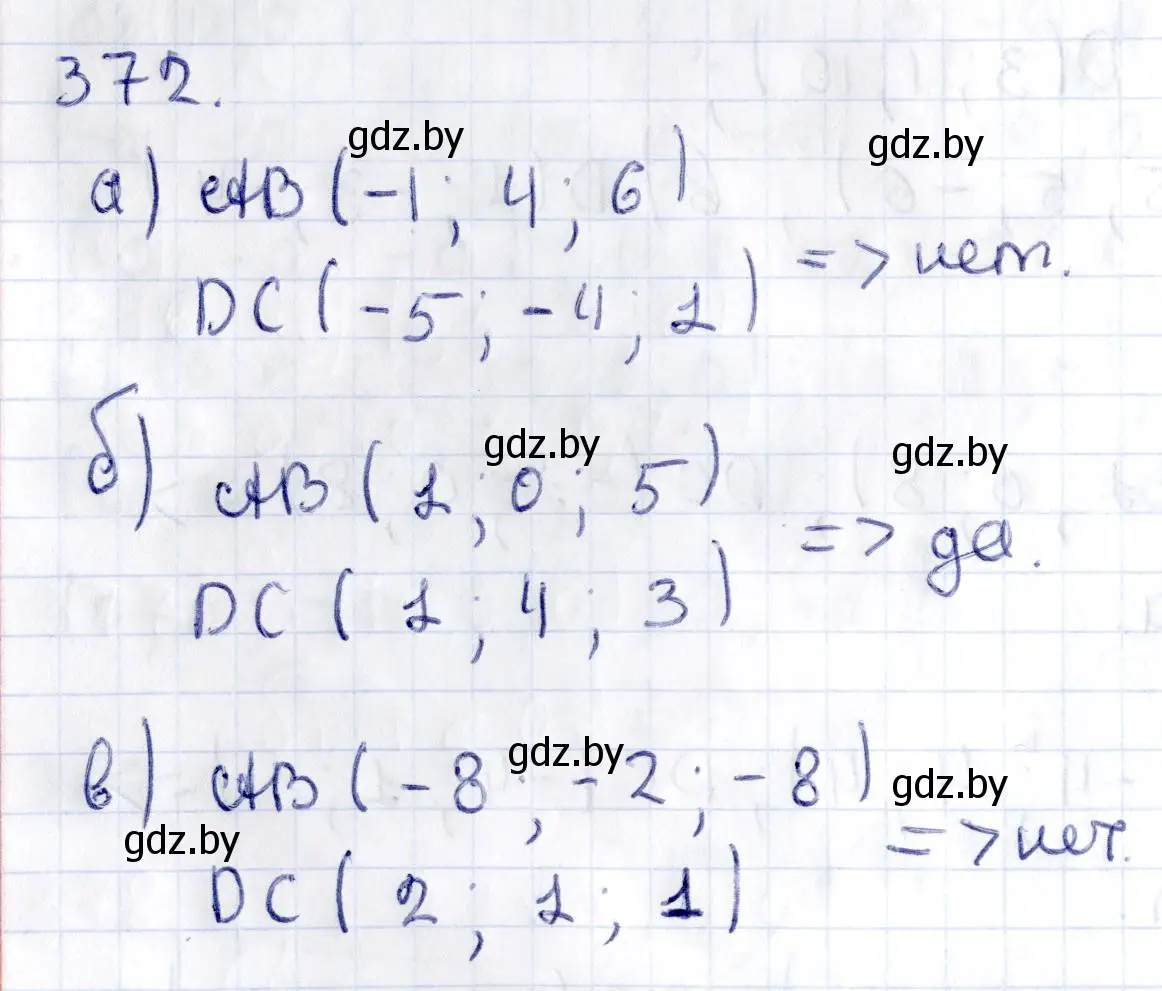 372.
gdz.by
gdz.by
а) AB (-1; 4; 6)
DC (-5; -4; 1) => нет.
gdz.by
gdz.by
б) AB (1; 0; 5)
DC (1; 4; 3) => да.
gdz.by
gdz.by
в) AB (-8; -2; -8)
gdz.by
DC (2; 1; 1) => нет.